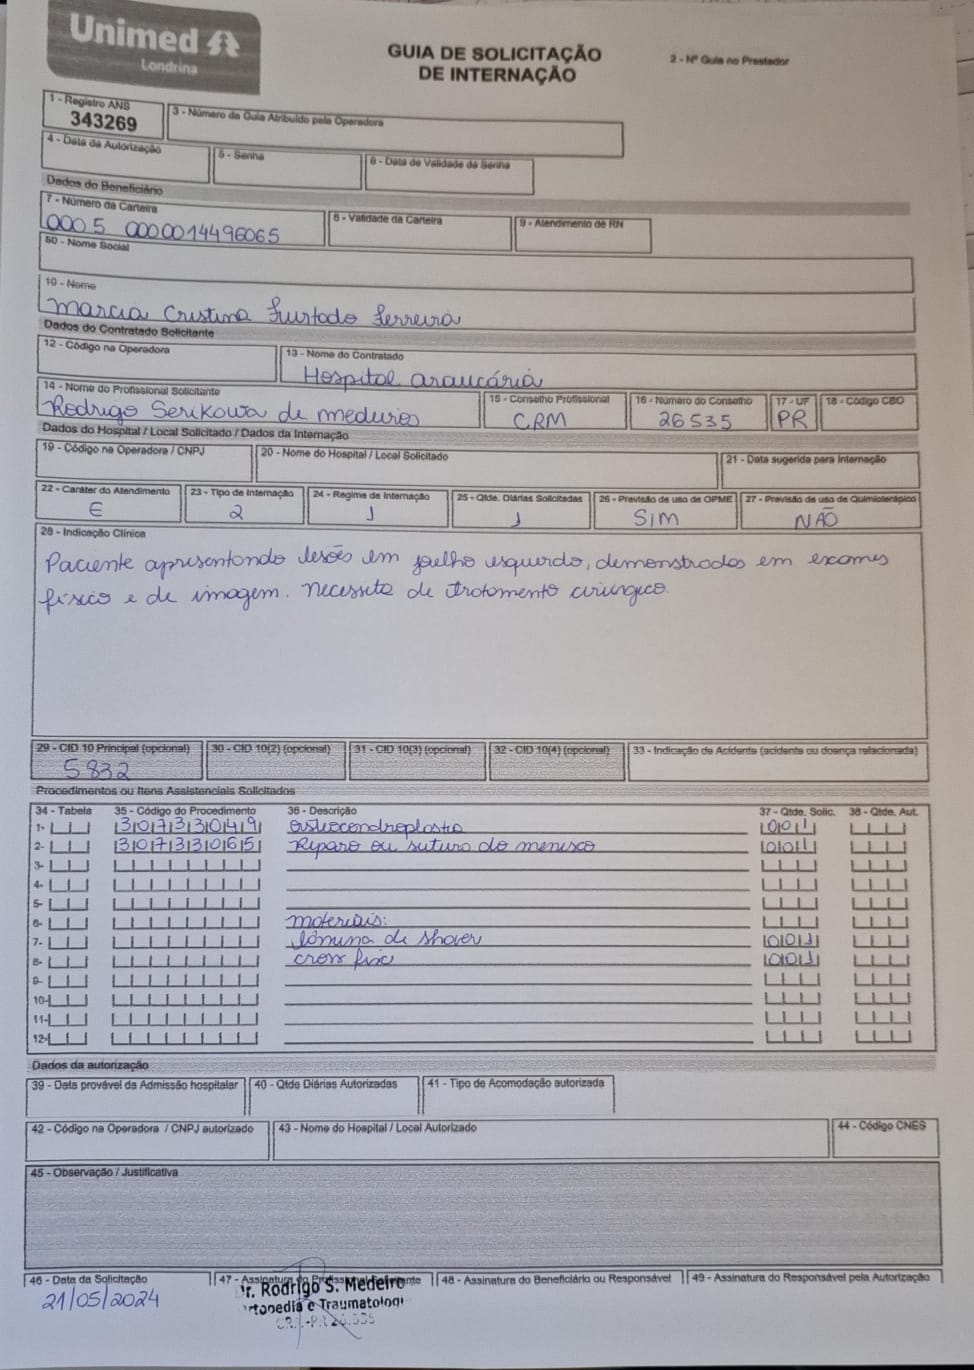 Unimed
Londrina
GUIA DE SOLICITAÇÃO
DE INTERNAÇÃO
2 - Nº Guia no Prestador
1 - Registro ANS
343269
3 - Número da Guia Atribuído pela Operadora
4 - Data da Autorização
5 - Senha
6 - Data de Validade da Senha
Dados do Beneficiário
7 - Número da Carteira
0005 0000014496065
8 - Validade da Carteira
9 - Atendimento de RN
50 - Nome Social
10 - Nome
Marcia Cristina Furtado Ferreira
Dados do Contratado Solicitante
12 - Código na Operadora
13 - Nome do Contratado
Hospital araucária
14 - Nome do Profissional Solicitante
Rodrigo Serikowa de medeiros
15 - Conselho Profissional
CRM
16 - Número do Conselho
26535
17 - UF
PR
18 - Código CBO
Dados do Hospital / Local Solicitado / Dados da Internação
19 - Código na Operadora / CNPJ
20 - Nome do Hospital / Local Solicitado
21 - Data sugerida para Internação
22 - Caráter do Atendimento
E
23 - Tipo de Internação
2
24 - Regime de Internação
1
25 - Qtde. Diárias Solicitadas
1
26 - Previsão de uso de OPME
SIM
27 - Previsão de uso de Quimioterápico
NÃO
28 - Indicação Clínica
Paciente apresentando lesões em joelho esquerdo, demonstrados em exames
físico e de imagem. necessita de tratamento cirúrgico.
29 - CID 10 Principal (opcional)
S832
30 - CID 10(2) (opcional)
31 - CID 10(3) (opcional)
32 - CID 10(4) (opcional)
33 - Indicação de Acidente (acidente ou doença relacionada)
Procedimentos ou Itens Assistenciais Solicitados
34 - Tabela 35 - Código do Procedimento 36 - Descrição 37 - Qtde. Solic. 38 - Qtde. Aut.
1- 30733049 osteocondroplastia 001
2- 30733065 Reparo ou sutura do menisco 001
3-
4-
5-
6- materiais:
7- lâmina de shaver 001
8- cross fix 001
9-
10-
11-
12-
Dados da autorização
39 - Data provável da Admissão hospitalar
40 - Qtde Diárias Autorizadas
41 - Tipo de Acomodação autorizada
42 - Código na Operadora / CNPJ autorizado
43 - Nome do Hospital / Local Autorizado
44 - Código CNES
45 - Observação / Justificativa
46 - Data da Solicitação
21/05/2024
47 - Assinatura do Profissional Solicitante
r. Rodrigo S. Medeiro
rtopedia e Traumatologi
CRM-PR 26.535
48 - Assinatura do Beneficiário ou Responsável
49 - Assinatura do Responsável pela Autorização